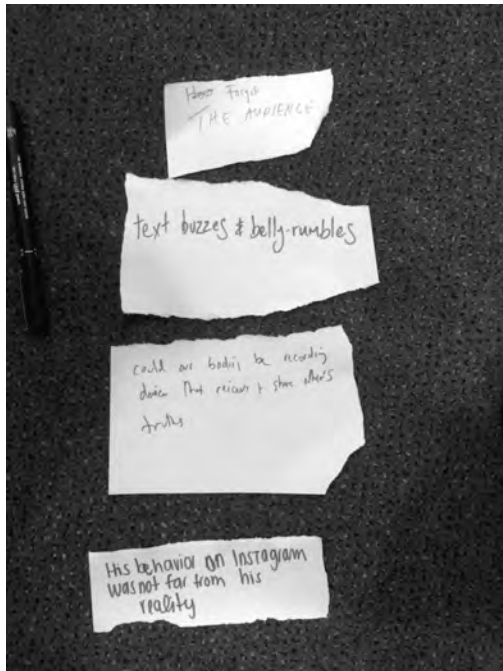 Forget
THE AUDIENCE
text buzzes & belly-rumbles
could our bodies be recording
devices that recieve & share other's
truths
His behavior on Instagram
was not far from his
reality